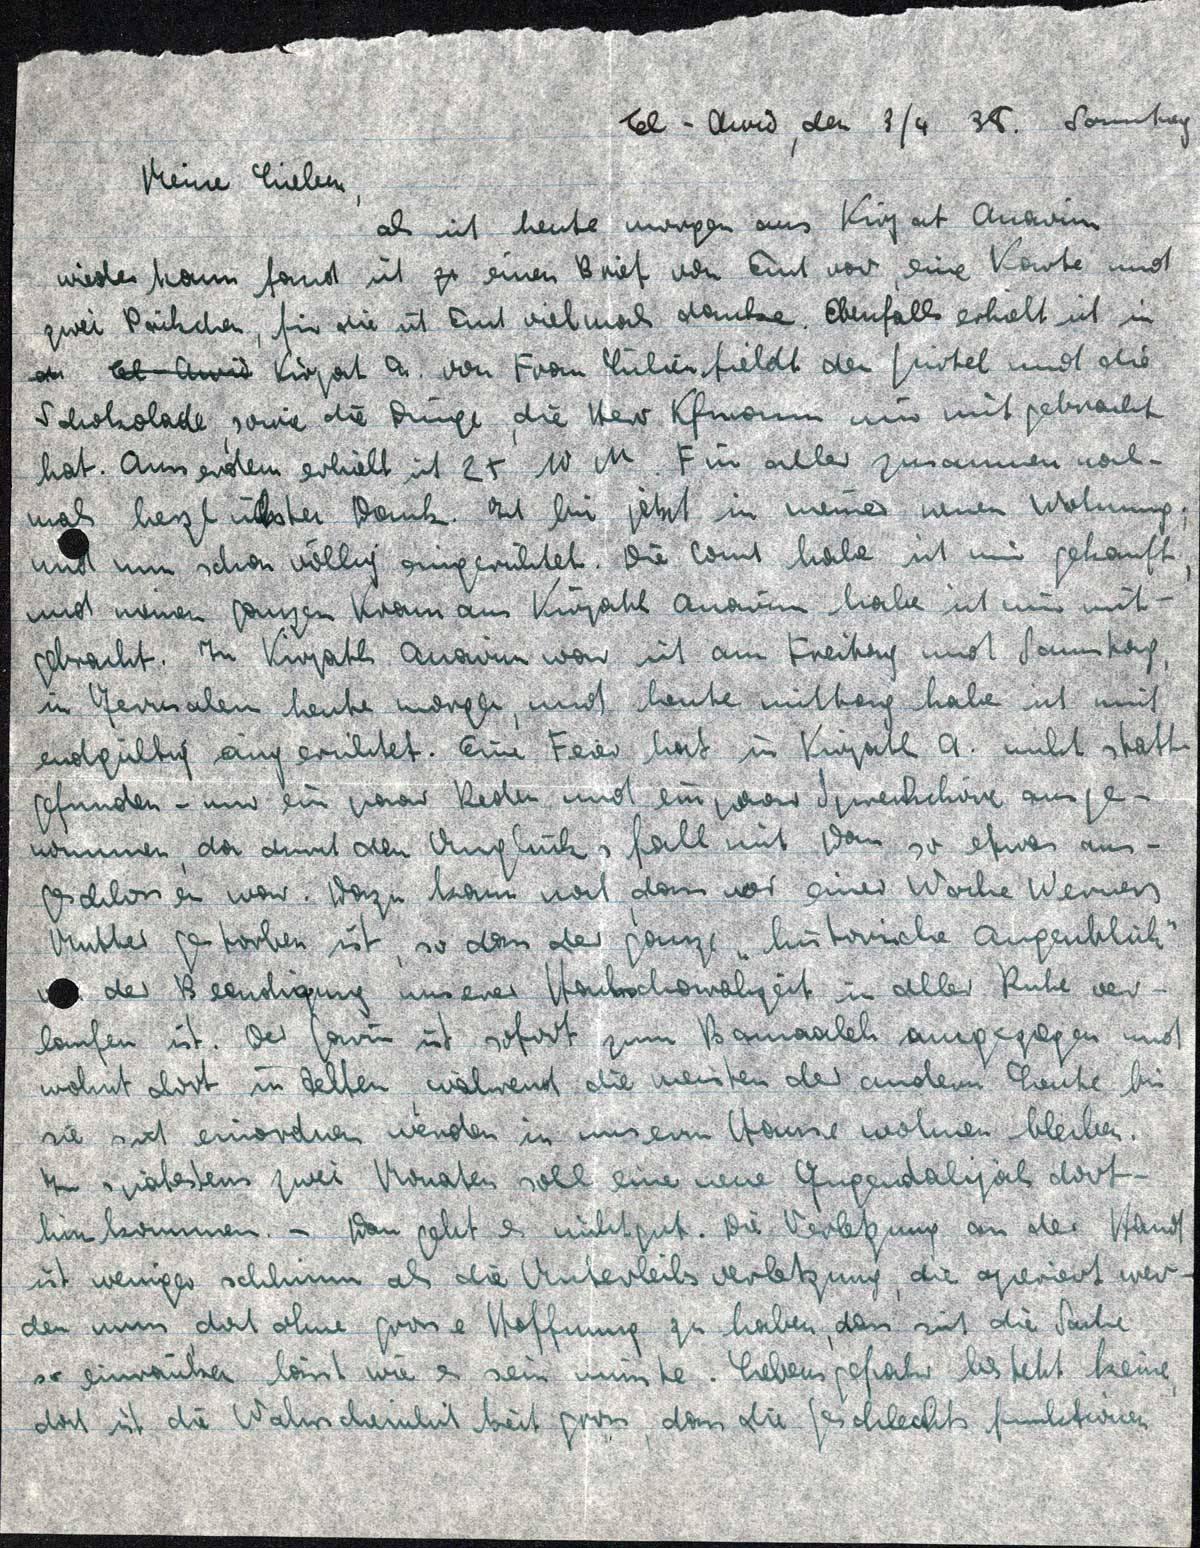 Tel-Awiw, den 3/4 38. Sonntag
Meine Lieben,
als ich heute morgen aus Kirjat Anawim
wieder kam fand ich je einen Brief von Euch vor, eine Karte und
zwei Päckchen, für die ich Euch vielmals danke. Ebenfalls erhielt ich in
Tel-Awiw Kirjat A. von Frau Lilienfeldt den Gürtel und die
Schokolade, sowie die Dinge, die Herr Kfmann mir mitgebracht
hat. Ausserdem erhielt ich 2 x 10 M. Für alles zusammen noch-
mals herzlichster Dank. Ich bin jetzt in meiner neuen Wohnung,
und nun schon völlig eingerichtet. Die Couch habe ich mir gekauft,
und meinen ganzen Kram aus Kirjath Anawim habe ich mir mit-
gebracht. In Kirjath Anawim war ich am Freitag und Samstag,
in Jerusalem heute morgen, und heute mittag habe ich mich
endgültig eingerichtet. Eine Feier hat in Kirjath A. nicht statt-
gefunden - nur ein paar Reden und ein paar Sprechchöre ausge-
nommen, da durch den Unglücksfall mit Dan so etwas aus-
geschlossen war. Dazu kam noch, dass vor einer Woche Werners
Mutter gestorben ist, so dass der ganze „historische Augenblick"
der Beendigung unserer Hachscharahzeit in aller Ruhe ver-
laufen ist. Der Garin ist sofort zum Bamaaleh umgezogen und
wohnt dort in Zelten, während die meisten der andern Leute bis
sie sich einordnen werden in unserm Hause wohnen bleiben.
In spätestens zwei Monaten soll eine neue Jugendalijah dort-
hin kommen. - Dan geht es nicht gut. Die Verletzung an der Hand
ist weniger schlimm als die Unterleibsverletzung, die operiert wer-
den muss doch ohne grosse Hoffnung zu haben, dass sich die Sache
so einränken lässt wie es sein müsste. Lebensgefahr besteht keine,
doch ist die Wahrscheinlichkeit gross, dass die Geschlechtsfunktionen